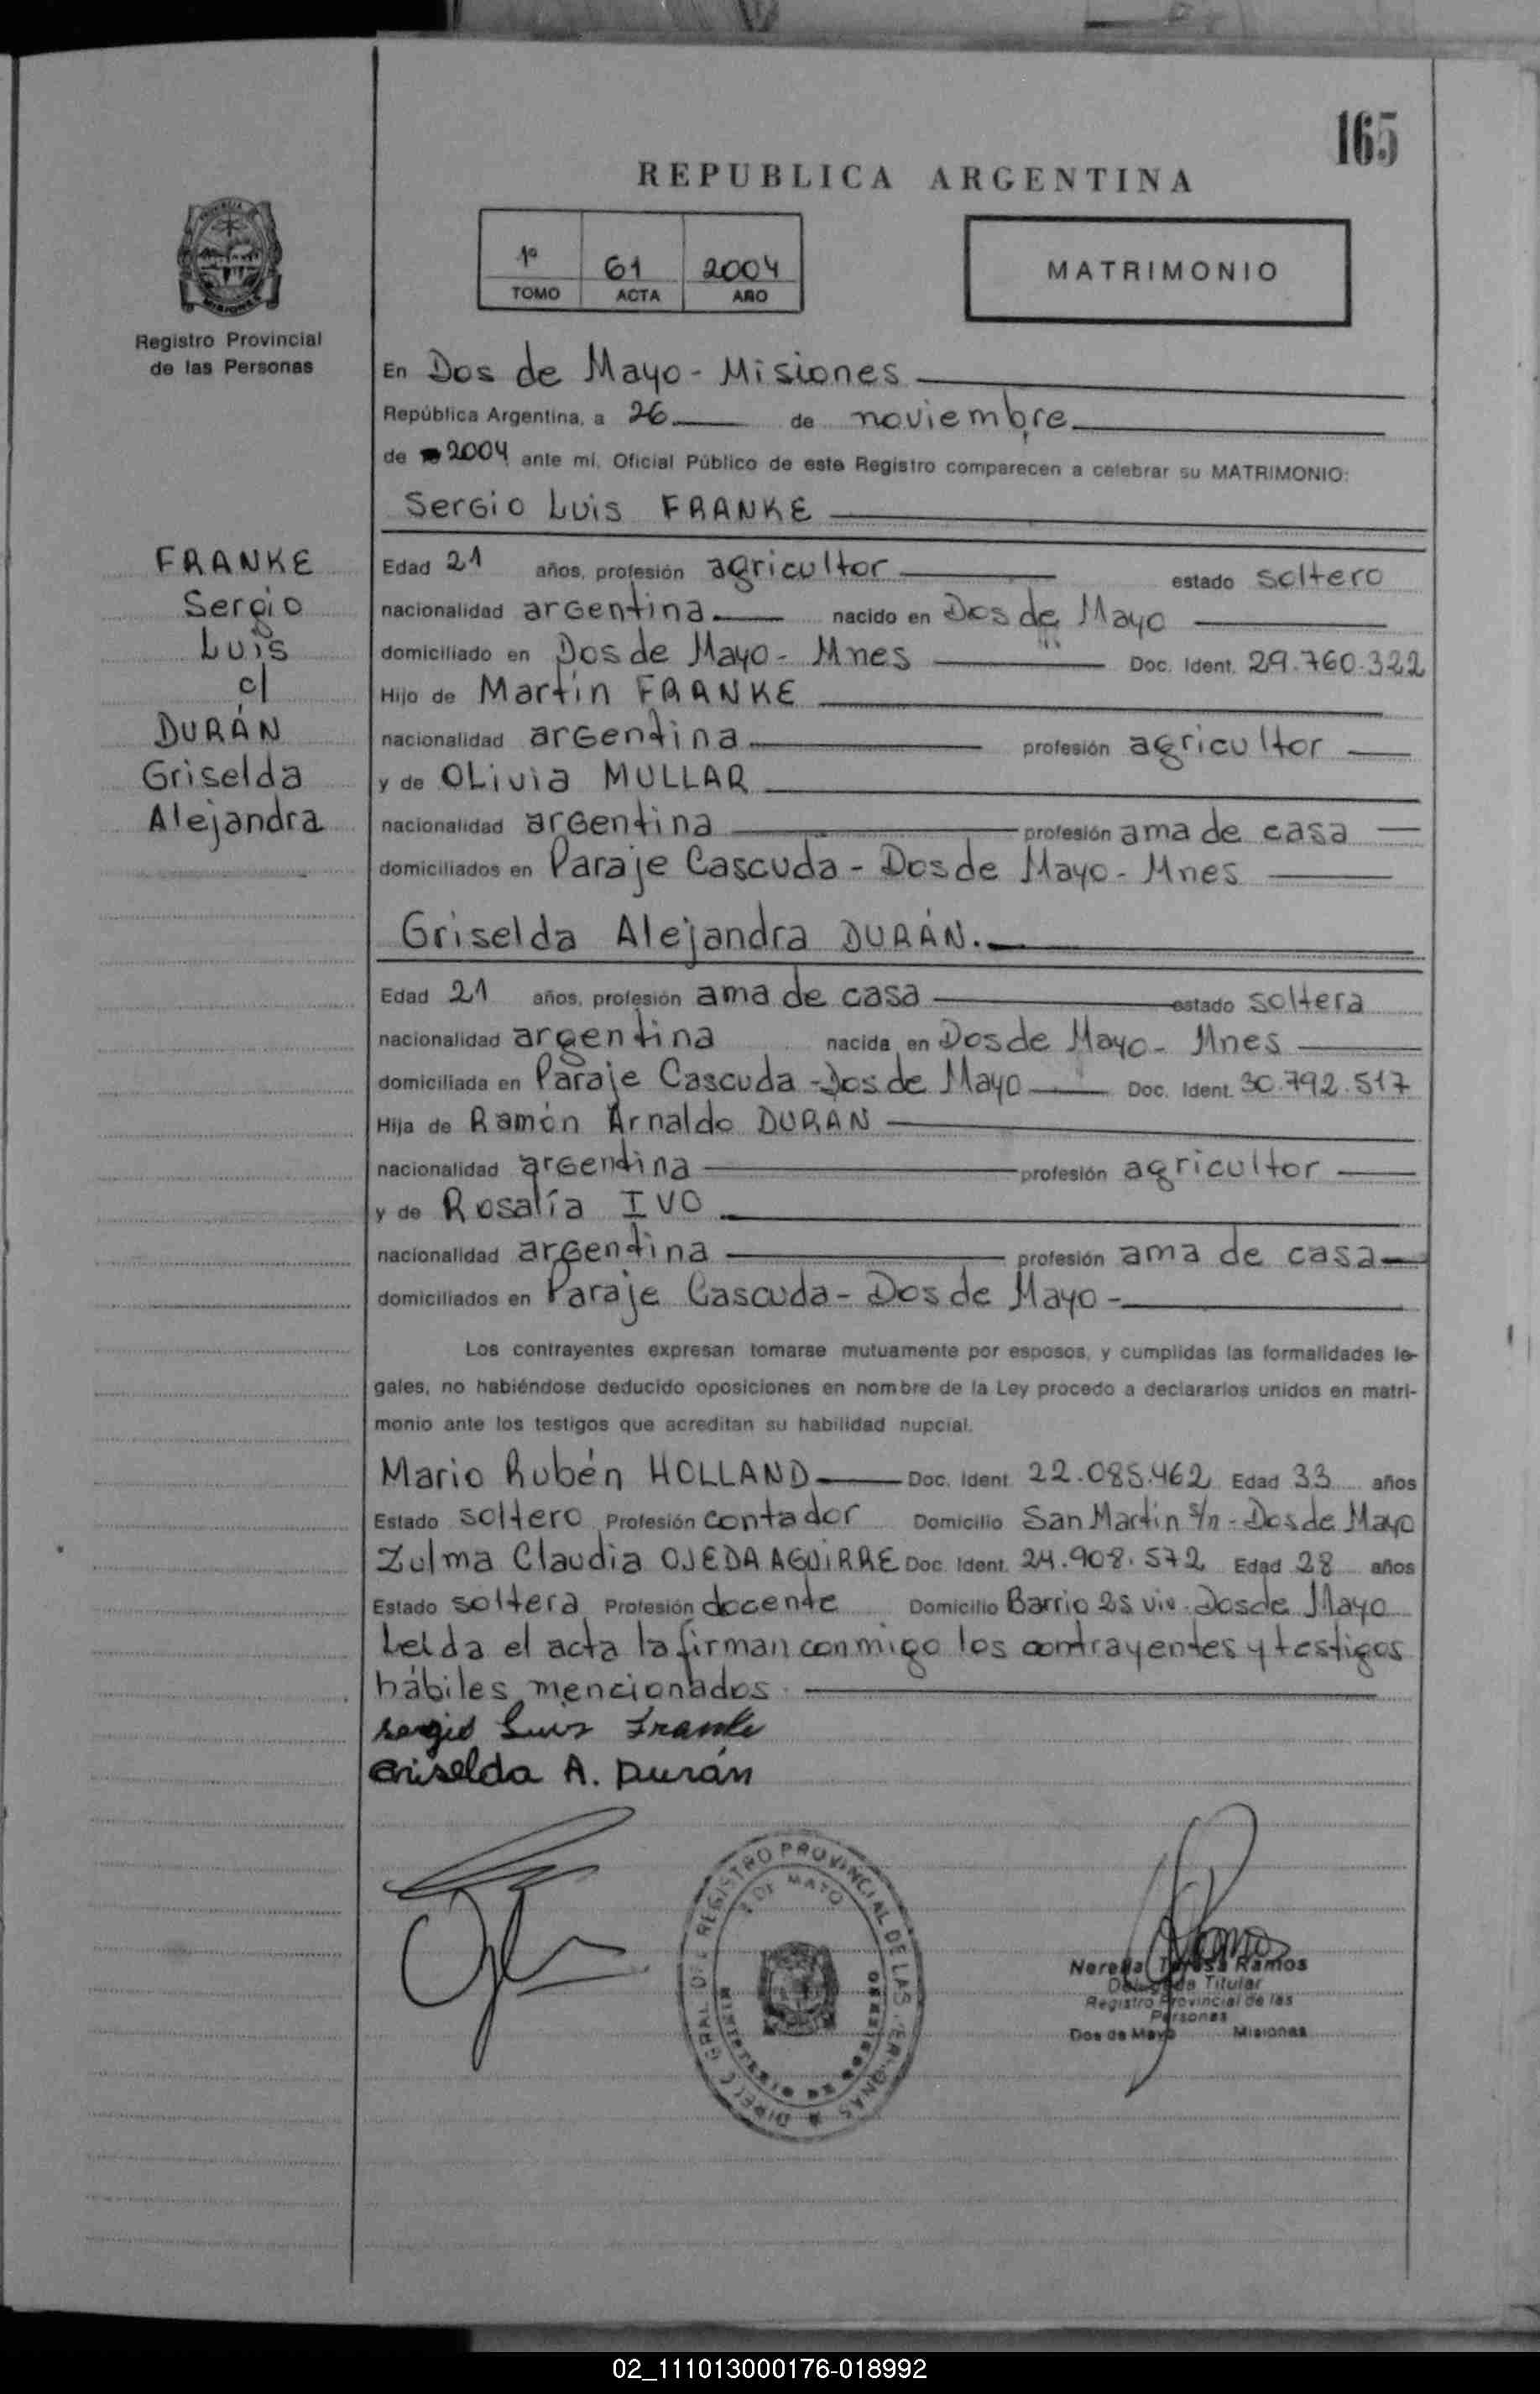 165
REPUBLICA ARGENTINA
1º 61 2004
TOMO ACTA AÑO
MATRIMONIO
Registro Provincial
de las Personas
En Dos de Mayo - Misiones
República Argentina, a 26 de noviembre
de 2004 ante mí, Oficial Público de este Registro comparecen a celebrar su MATRIMONIO:
Sergio Luis FRANKE
FRANKE
Sergio
Luis
c/
DURÁN
Griselda
Alejandra
Edad 21 años, profesión agricultor estado soltero
nacionalidad argentina nacido en Dos de Mayo
domiciliado en Dos de Mayo - Mnes Doc. Ident. 29.760.322
Hijo de Martín FRANKE
nacionalidad argentina profesión agricultor
y de Olivia MULLAR
nacionalidad argentina profesión ama de casa
domiciliados en Paraje Cascuda - Dos de Mayo - Mnes
Griselda Alejandra DURÁN.
Edad 21 años, profesión ama de casa estado soltera
nacionalidad argentina nacida en Dos de Mayo - Mnes
domiciliada en Paraje Cascuda - Dos de Mayo Doc. Ident. 30.792.517
Hija de Ramón Arnaldo DURAN
nacionalidad argentina profesión agricultor
y de Rosalía IVO
nacionalidad argentina profesión ama de casa
domiciliados en Paraje Cascuda - Dos de Mayo -
Los contrayentes expresan tomarse mutuamente por esposos, y cumplidas las formalidades le-
gales, no habiéndose deducido oposiciones en nombre de la Ley procedo a declararlos unidos en matri-
monio ante los testigos que acreditan su habilidad nupcial.
Mario Rubén HOLLAND Doc. Ident. 22.085.462 Edad 33 años
Estado soltero Profesión contador Domicilio San Martín s/n - Dos de Mayo
Zulma Claudia OJEDA AGUIRRE Doc. Ident. 24.908.572 Edad 28 años
Estado soltera Profesión docente Domicilio Barrio 25 viv. Dos de Mayo
Leída el acta la firman conmigo los contrayentes y testigos
hábiles mencionados.
Sergio Luis Franke
Griselda A. Durán
DIRECC GRAL DEL REGISTRO PROVINCIAL DE LAS PERSONAS
2 DE MAYO
MINISTERIO DE GOBIERNO
Nerella Teresa Ramos
Delegada Titular
Registro Provincial de las
Personas
Dos de Mayo Misiones
02_111013000176-018992